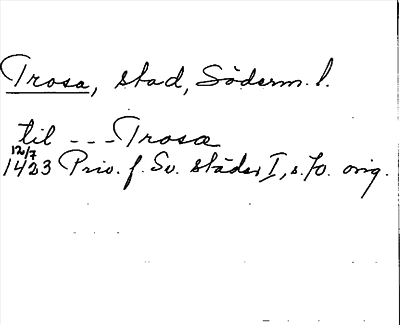 Trosa, stad, Söderm. l.
til --- Trosa
12/7
1423 Priv. f. Sv. städer I, s. 70. orig.